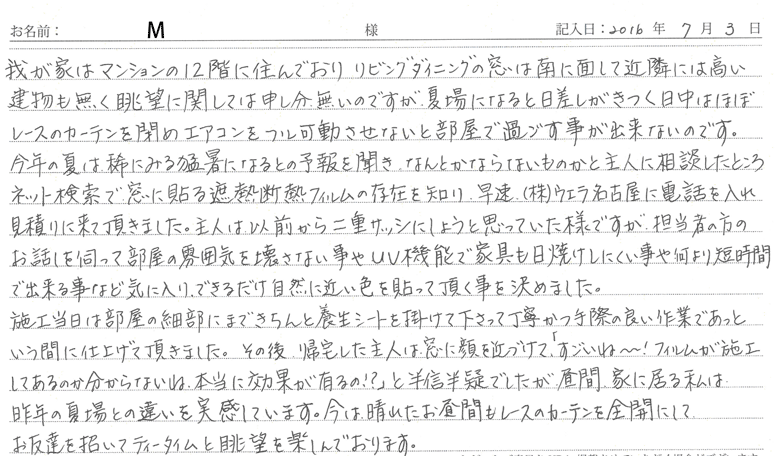 お名前： M 様 記入日：2016 年 7 月 3 日
我が家はマンションの12階に住んでおり リビングダイニングの窓は南に面して近隣には高い
建物も無く眺望に関しては申し分無いのですが、夏場になると日差しがきつく日中はほぼ
レースのカーテンを閉めエアコンをフル可動させないと部屋で過ごす事が出来ないのです。
今年の夏は稀にみる猛暑になるとの予報を聞き、なんとかならないものかと主人に相談したところ
ネット検索で窓に貼る遮熱断熱フィルムの存在を知り、早速、(株)ウエラ名古屋に電話を入れ
見積りに来て頂きました。主人は以前から二重サッシにしようと思っていた様ですが、担当者の方の
お話しを伺って部屋の雰囲気を壊さない事やUV機能で家具も日焼けしにくい事や何より短時間
で出来る事など気に入り、できるだけ自然に近い色を貼って頂く事を決めました。
施工当日は部屋の細部にまできちんと養生シートを掛けて下さって丁寧かつ手際の良い作業であっと
いう間に仕上げて頂きました。その後、帰宅した主人は、窓に顔を近づけて、「すごいね〜！フィルムが施工
してあるのか分からないね、本当に効果が有るの!?」と半信半疑でしたが、昼間、家に居る私は
昨年の夏場との違いを実感しています。今は、晴れたお昼間もレースのカーテンを全開にして
お友達を招いてティータイムと眺望を楽しんでおります。